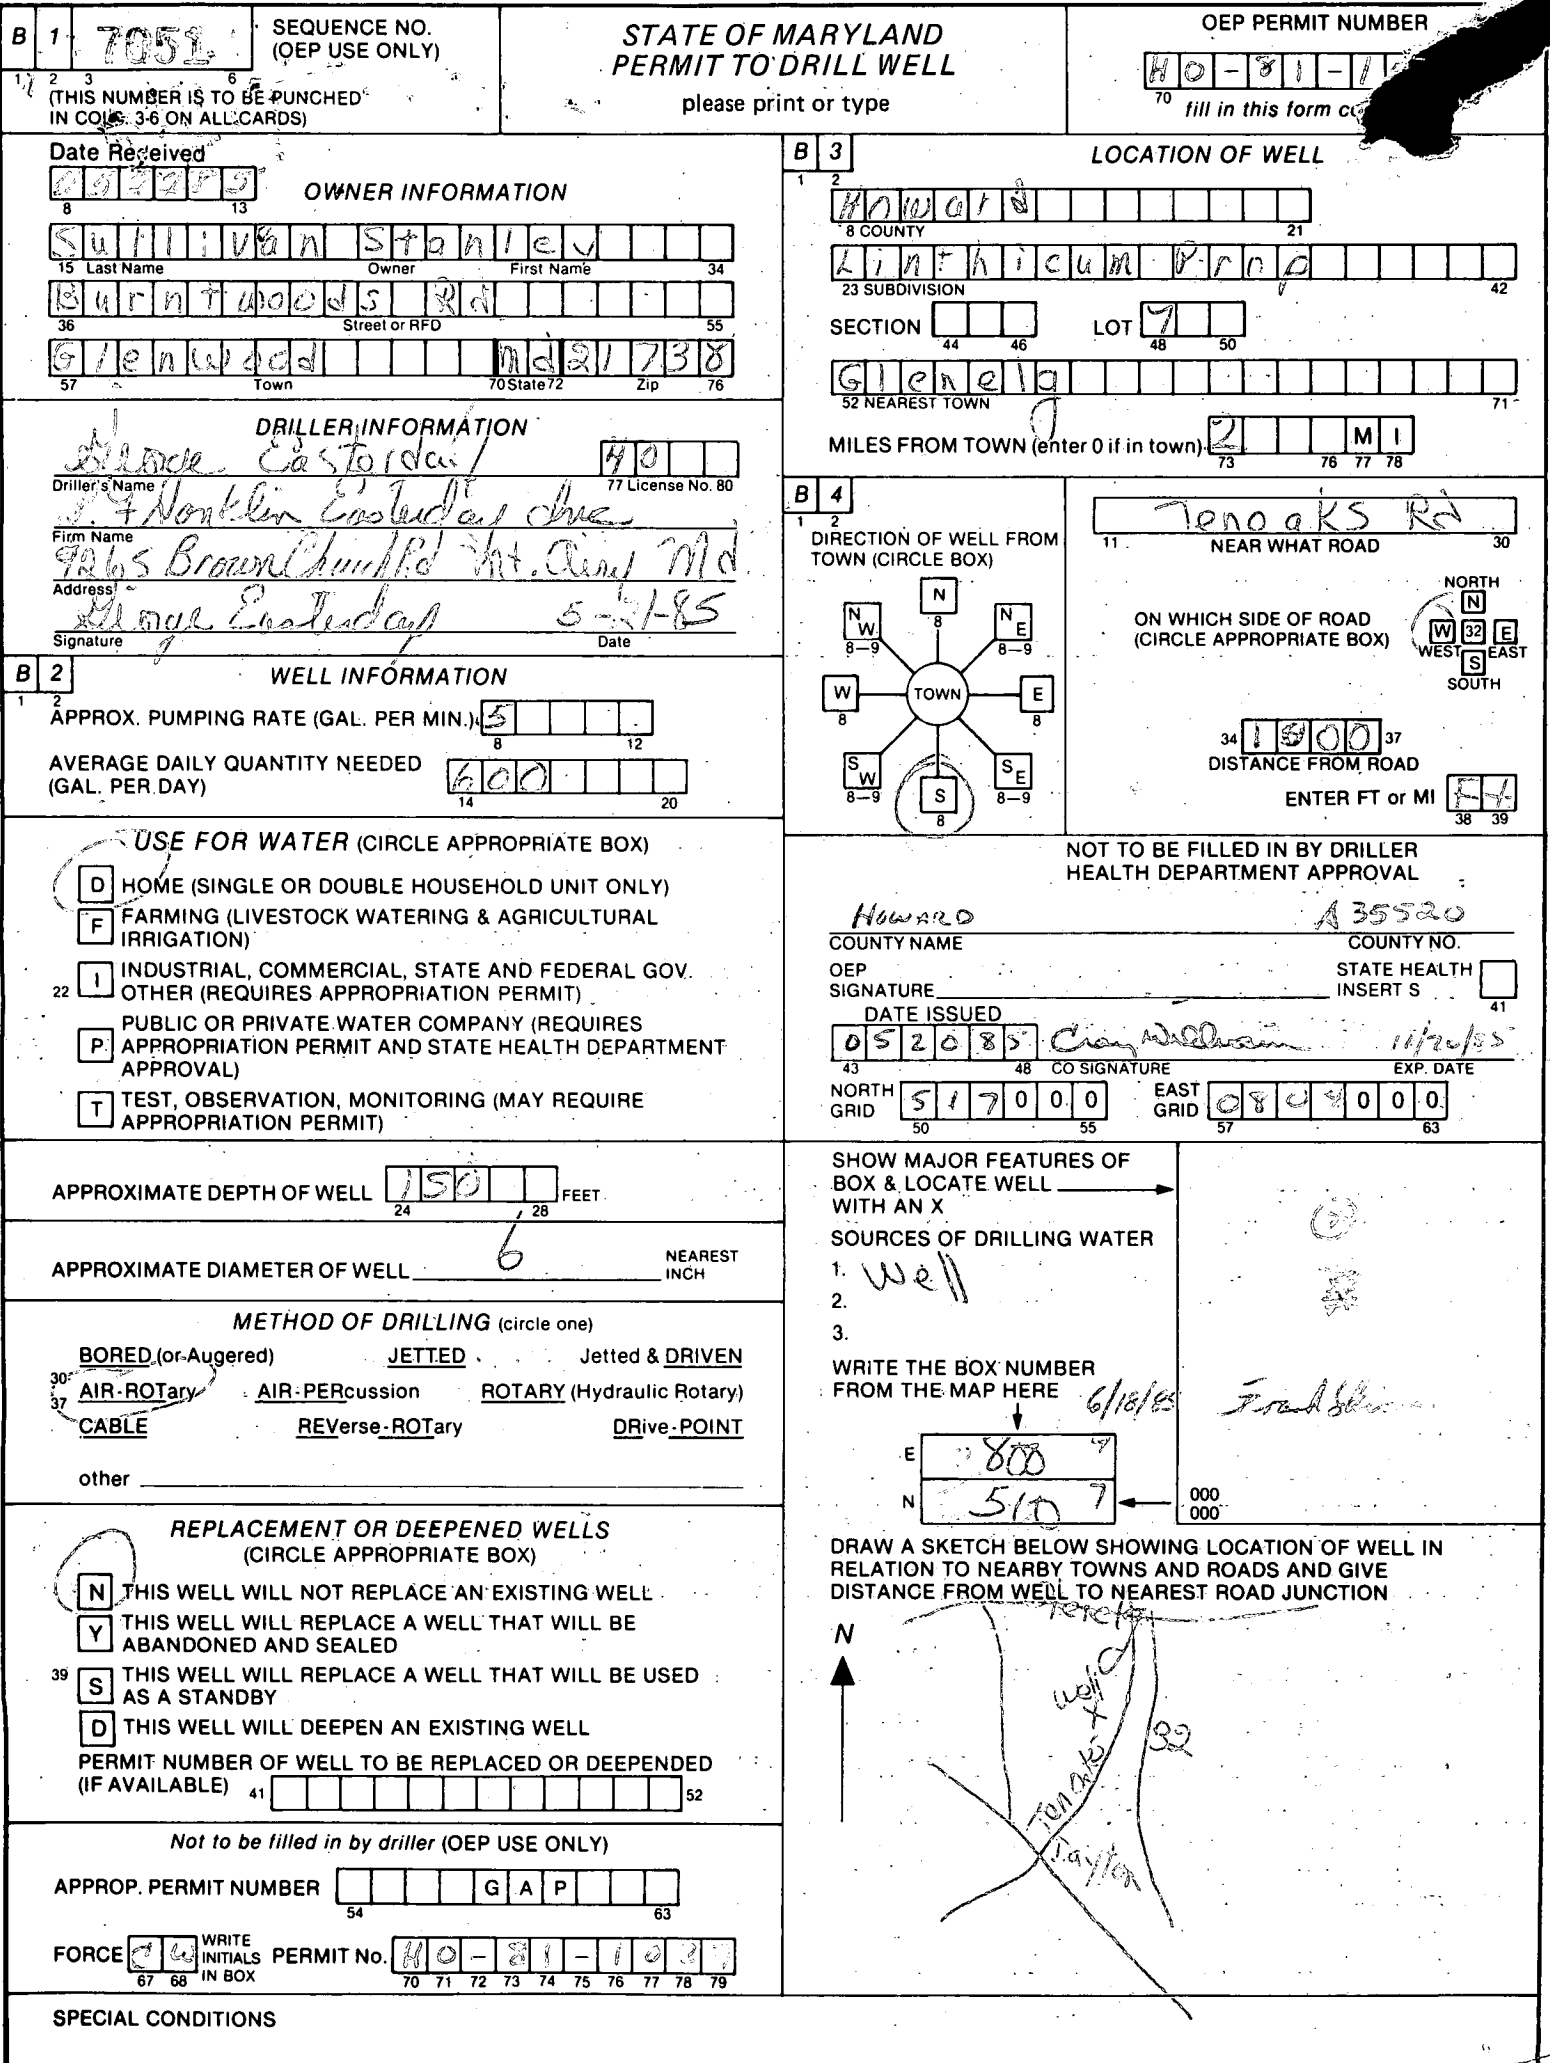 B 1 7051 SEQUENCE NO. (OEP USE ONLY)
1 2 3 6
(THIS NUMBER IS TO BE PUNCHED
IN COLS. 3-6 ON ALL CARDS)
STATE OF MARYLAND
PERMIT TO DRILL WELL
please print or type
OEP PERMIT NUMBER
HO-81-1
70 fill in this form
Date Received
8 13
OWNER INFORMATION
Sullivan Stanley
15 Last Name Owner First Name 34
Burntwoods Rd
36 Street or RFD 55
Glenwood Md 21738
57 Town 70 State 72 Zip 76
DRILLER INFORMATION
George Easterday 40
Driller's Name 77 License No. 80
Easterday Inc
Firm Name
9265 Brown Church Rd Mt. Airy Md.
Address
George Easterday 5-21-85
Signature Date
B 2 WELL INFORMATION
1 2
APPROX. PUMPING RATE (GAL. PER MIN.) 5
8 12
AVERAGE DAILY QUANTITY NEEDED
(GAL. PER DAY) 600
14 20
USE FOR WATER (CIRCLE APPROPRIATE BOX)
D HOME (SINGLE OR DOUBLE HOUSEHOLD UNIT ONLY)
F FARMING (LIVESTOCK WATERING & AGRICULTURAL
IRRIGATION)
22 I INDUSTRIAL, COMMERCIAL, STATE AND FEDERAL GOV.
OTHER (REQUIRES APPROPRIATION PERMIT)
P PUBLIC OR PRIVATE WATER COMPANY (REQUIRES
APPROPRIATION PERMIT AND STATE HEALTH DEPARTMENT
APPROVAL)
T TEST, OBSERVATION, MONITORING (MAY REQUIRE
APPROPRIATION PERMIT)
APPROXIMATE DEPTH OF WELL 150 FEET
24 28
APPROXIMATE DIAMETER OF WELL 6 NEAREST INCH
METHOD OF DRILLING (circle one)
BORED (or Augered) JETTED Jetted & DRIVEN
30 37 AIR-ROTary AIR-PERcussion ROTARY (Hydraulic Rotary)
CABLE REVerse-ROTary DRive-POINT
other
REPLACEMENT OR DEEPENED WELLS
(CIRCLE APPROPRIATE BOX)
N THIS WELL WILL NOT REPLACE AN EXISTING WELL
Y THIS WELL WILL REPLACE A WELL THAT WILL BE
ABANDONED AND SEALED
39 S THIS WELL WILL REPLACE A WELL THAT WILL BE USED
AS A STANDBY
D THIS WELL WILL DEEPEN AN EXISTING WELL
PERMIT NUMBER OF WELL TO BE REPLACED OR DEEPENDED
(IF AVAILABLE) 41 52
Not to be filled in by driller (OEP USE ONLY)
APPROP. PERMIT NUMBER G A P
54 63
FORCE CW WRITE INITIALS IN BOX PERMIT No. HO-81-1037
67 68 70 71 72 73 74 75 76 77 78 79
SPECIAL CONDITIONS
B 3 LOCATION OF WELL
1 2
Howard
8 COUNTY 21
Linthicum Prop
23 SUBDIVISION 42
SECTION LOT 7
44 46 48 50
Glenelg
52 NEAREST TOWN 71
MILES FROM TOWN (enter 0 if in town) 2 M I
73 76 77 78
B 4
1 2
DIRECTION OF WELL FROM
TOWN (CIRCLE BOX)
N 8
NW 8-9 NE 8-9
W 8 TOWN E 8
SW 8-9 SE 8-9
S 8
Tenoaks Rd
11 NEAR WHAT ROAD 30
ON WHICH SIDE OF ROAD
(CIRCLE APPROPRIATE BOX)
NORTH
N
W 32 E
WEST EAST
S
SOUTH
34 1800 37
DISTANCE FROM ROAD
ENTER FT or MI Ft
38 39
NOT TO BE FILLED IN BY DRILLER
HEALTH DEPARTMENT APPROVAL
HOWARD A 35520
COUNTY NAME COUNTY NO.
OEP SIGNATURE STATE HEALTH INSERT S
41
DATE ISSUED
052085 11/20/85
43 48 CO SIGNATURE EXP. DATE
NORTH GRID 517000 EAST GRID 0804000
50 55 57 63
SHOW MAJOR FEATURES OF
BOX & LOCATE WELL
WITH AN X
SOURCES OF DRILLING WATER
1. Well
2.
3.
WRITE THE BOX NUMBER
FROM THE MAP HERE 6/18/85
E 800 4
N 510 7 000
000
DRAW A SKETCH BELOW SHOWING LOCATION OF WELL IN
RELATION TO NEARBY TOWNS AND ROADS AND GIVE
DISTANCE FROM WELL TO NEAREST ROAD JUNCTION
N
Well
X
32
Ten Oaks
Dayton